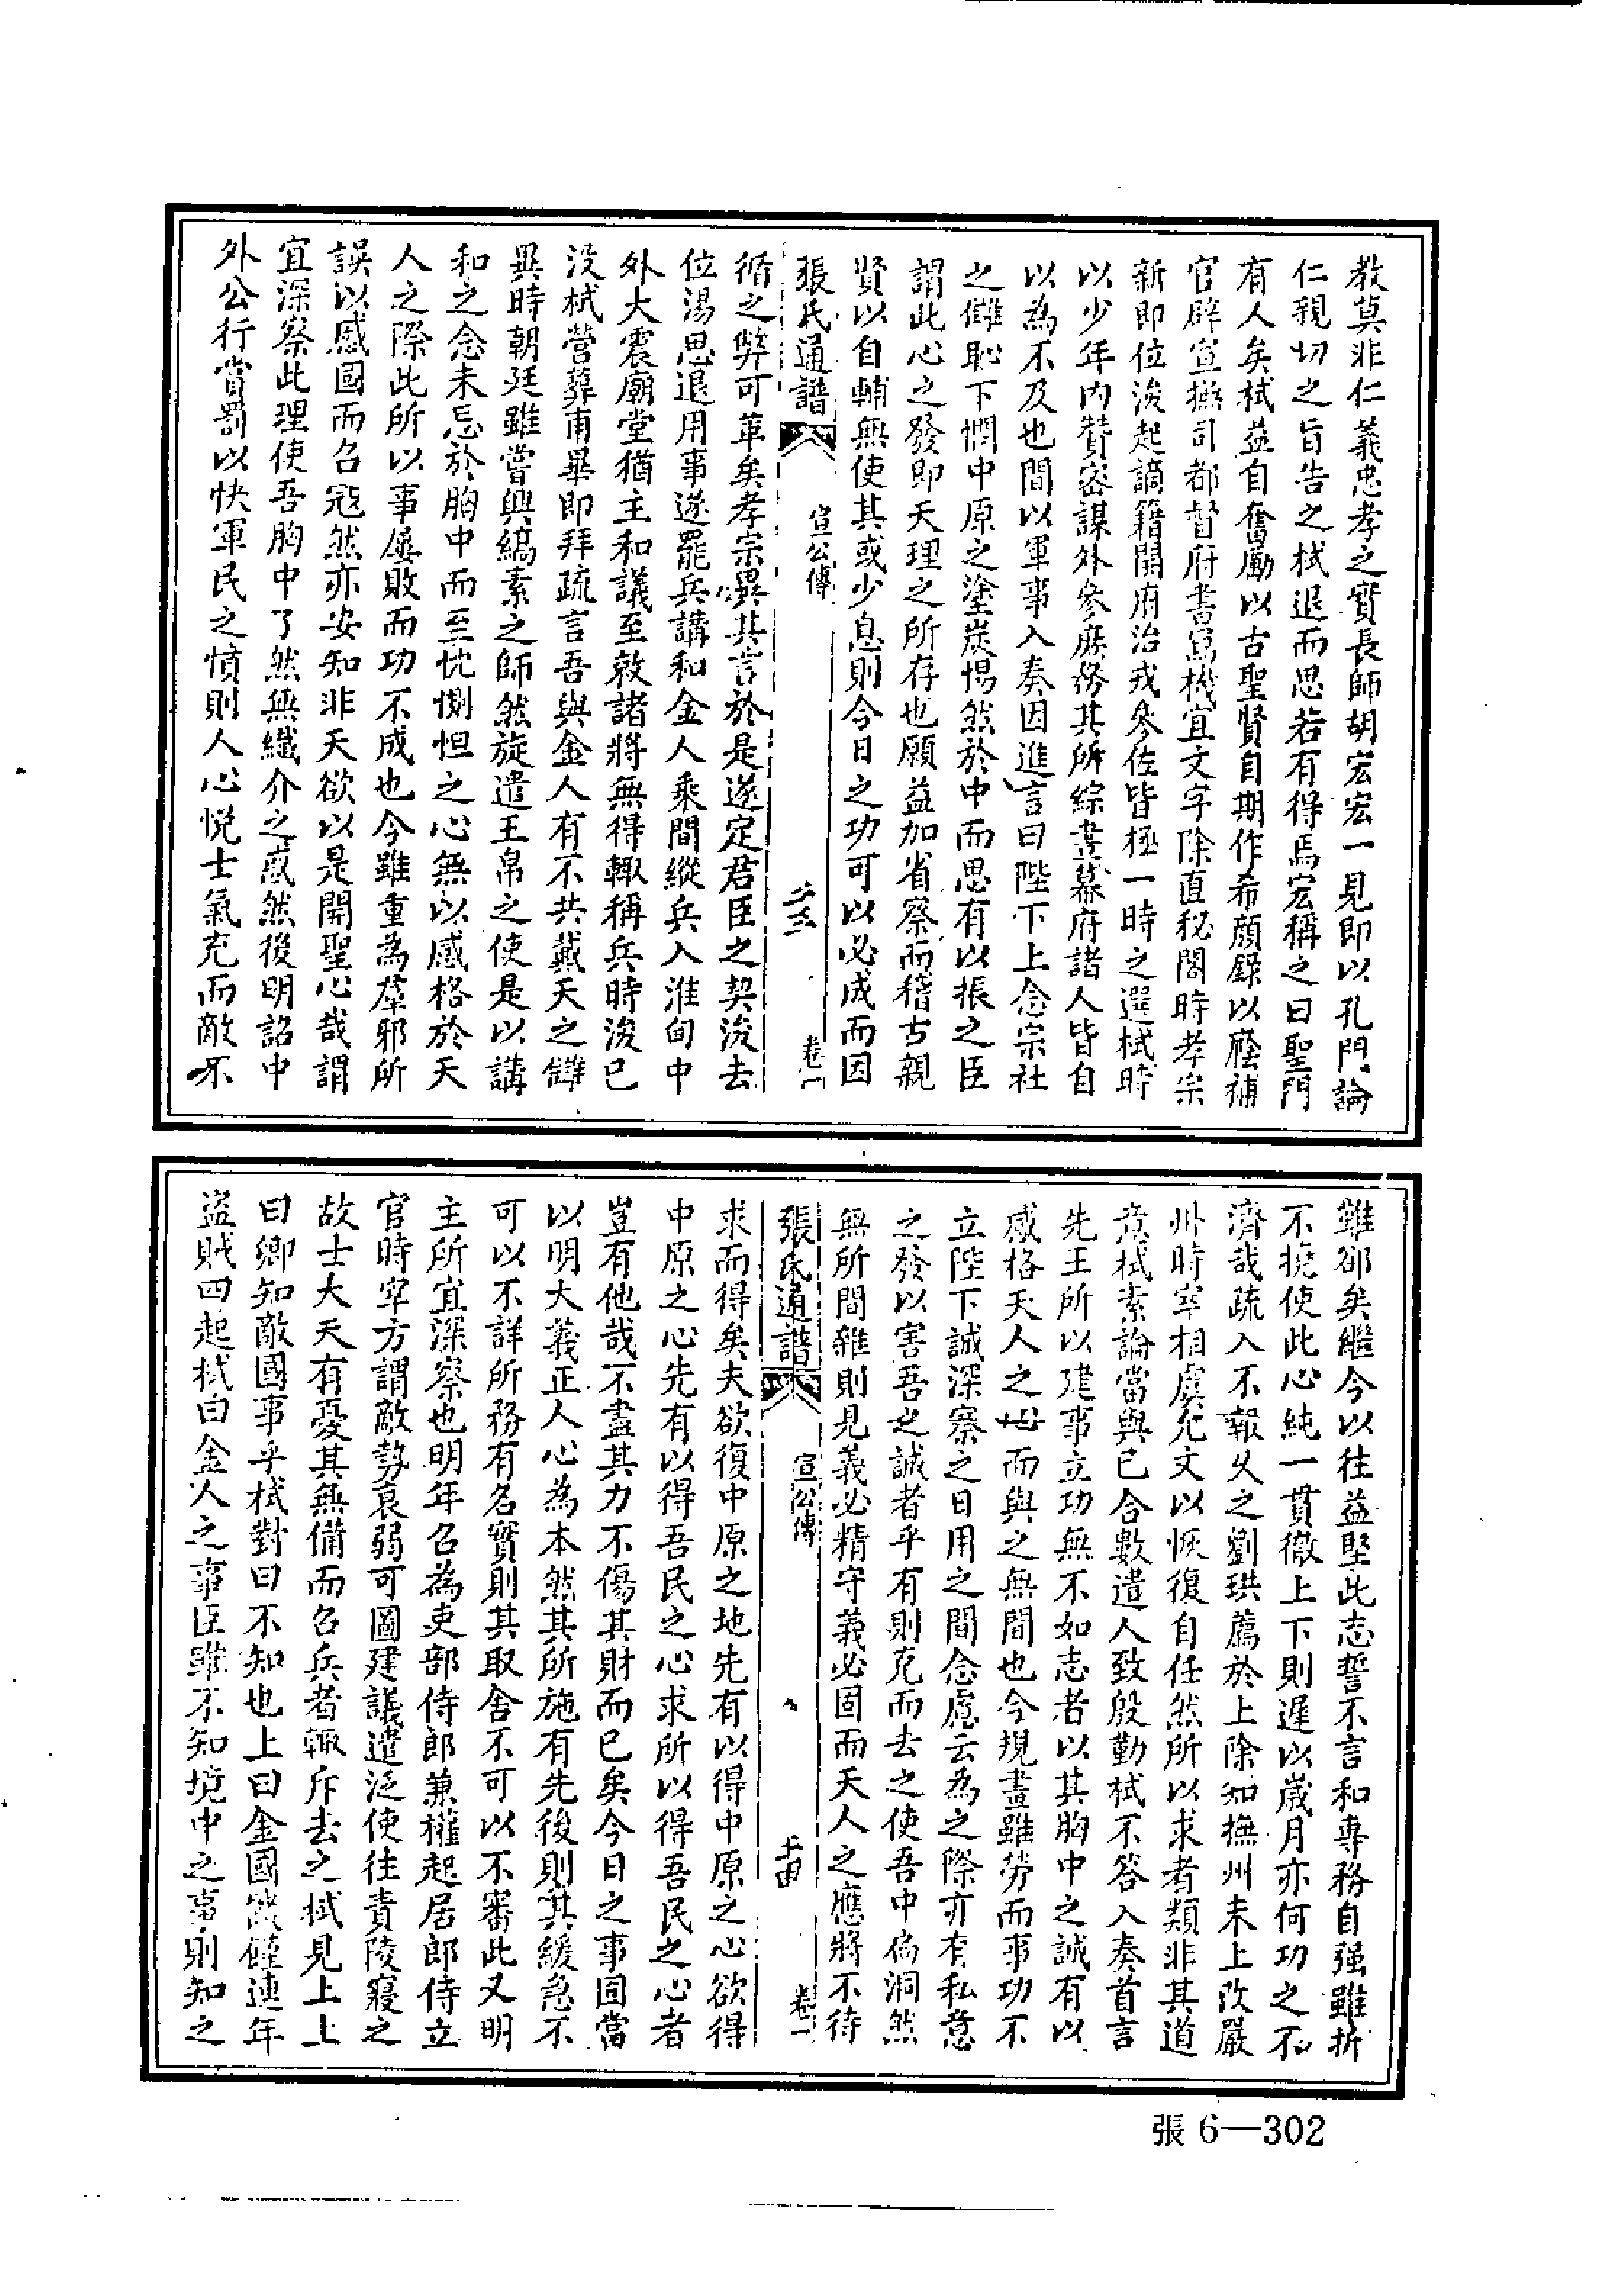 教莫非仁義忠孝之實長師胡宏宏一見即以孔門論
仁親切之旨告之栻退而思若有得焉宏稱之曰聖門
有人矣栻益自奮勵以古聖賢自期作希顏錄以廕補
官辟宣撫司都督府書寫機宜文字除直秘閣時孝宗
新即位浚起謫籍開府治戎參佐皆極一時之選栻時
以少年內贊密謀外參庶務其所綜畫幕府諸人皆自
以為不及也間以軍事入奏因進言曰陛下上念宗社
之讎恥下憫中原之塗炭惕然於中而思有以振之臣
謂此心之發即天理之所存也願益加省察而稽古親
賢以自輔無使其或少息則今日之功可以必成而因
張氏通譜 宣公傳 二十三 卷一
循之弊可革矣孝宗異其言於是遂定君臣之契浚去
位湯思退用事遂罷兵講和金人乘間縱兵入淮甸中
外大震廟堂猶主和議至敕諸將無得輒稱兵時浚已
沒栻營葬甫畢即拜疏言吾與金人有不共戴天之讎
異時朝廷雖嘗興縞素之師然旋遣玉帛之使是以講
和之念未忘於胸中而至忱惻怛之心無以感格於天
人之際此所以事屢敗而功不成也今雖重為羣邪所
誤以慼國而召寇然亦安知非天欲以是開聖心哉謂
宜深察此理使吾胸中了然無纖介之惑然後明詔中
外公行賞罰以快軍民之憤則人心悅士氣充而敵不
難卻矣繼今以往益堅此志誓不言和專務自强雖折
不撓使此心純一貫徹上下則遲以歲月亦何功之不
濟哉疏入不報久之劉珙薦於上除知撫州未上改嚴
州時宰相虞允文以恢復自任然所以求者類非其道
意栻素論當與己合數遣人致殷勤栻不答入奏首言
先王所以建事立功無不如志者以其胸中之誠有以
感格天人之心而與之無間也今規畫雖勞而事功不
立陛下誠深察之日用之間念慮云為之際亦有私意
之發以害吾之誠者乎有則克而去之使吾中倘洞然
無所間雜則見義必精守義必固而天人之應將不待
張氏通譜 宣公傳 二十四 卷一
求而得矣夫欲復中原之地先有以得中原之心欲得
中原之心先有以得吾民之心求所以得吾民之心者
豈有他哉不盡其力不傷其財而已矣今日之事固當
以明大義正人心為本然其所施有先後則其緩急不
可以不詳所務有名實則其取舍不可以不審此又明
主所宜深察也明年召為吏部侍郎兼權起居郎侍立
官時宰方謂敵勢衰弱可圖建議遣泛使往責陵寢之
故士大夫有憂其無備而召兵者輒斥去之栻見上上
曰卿知敵國事乎栻對曰不知也上曰金國饑饉連年
盜賊四起栻曰金人之事臣雖不知境中之事則知之
張6—302